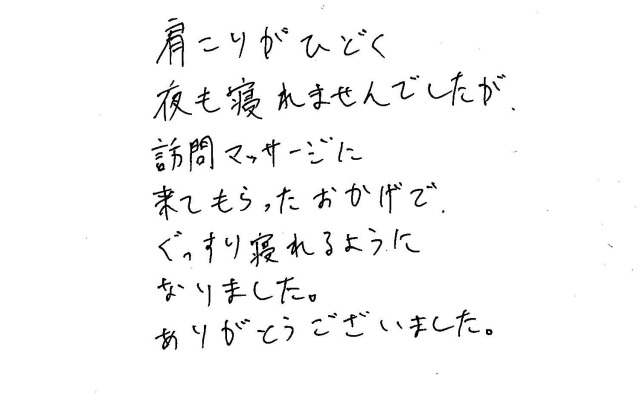 肩こりがひどく
夜も寝れませんでしたが、
訪問マッサージに
来てもらったおかげで、
ぐっすり寝れるように
なりました。
ありがとうございました。